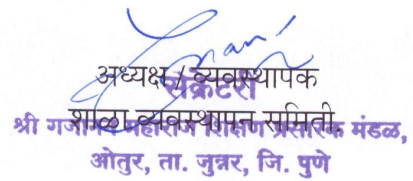 अध्यक्ष / व्यवस्थापक
सेक्रेटरी
शाळा व्यवस्थापन समिती
श्री गजानन महाराज शिक्षण प्रसारक मंडळ,
ओतुर, ता. जुन्नर, जि. पुणे